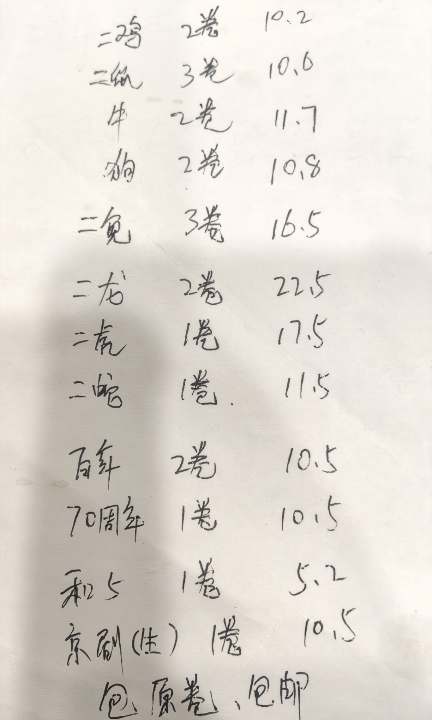 二鸡 2卷 10.2
二猴 3卷 10.6
牛 2卷 11.7
狗 2卷 10.8
二兔 3卷 16.5
二龙 2卷 22.5
二虎 1卷 17.5
二蛇 1卷.  11.5
百年 2卷 10.5
70周年 1卷 10.5
和5 1卷 5.2
京剧(生) 1卷 10.5
包、原卷、包邮